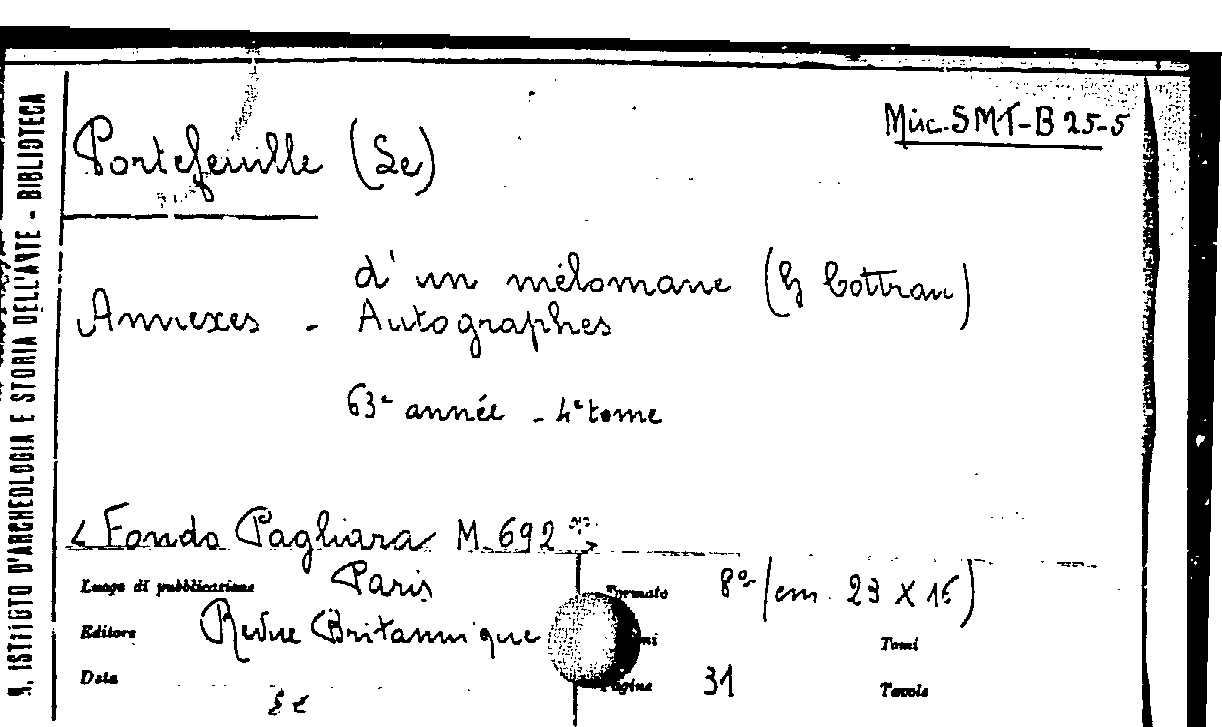 Misc. SMT-B 25-5
Portefeuille (Le)
d'un mélomane (G Cottrau)
Annexes - Autographes
63e année - 4e tome
< Fondo Pagliara M. 692 >
Luogo di pubblicazione Paris
Formato 8° (cm. 23 X 16)
Editore Revue Britannique
Tomi
Data
Pagine 31
Tavole
R. ISTITUTO D'ARCHEOLOGIA E STORIA DELL'ARTE - BIBLIOTECA